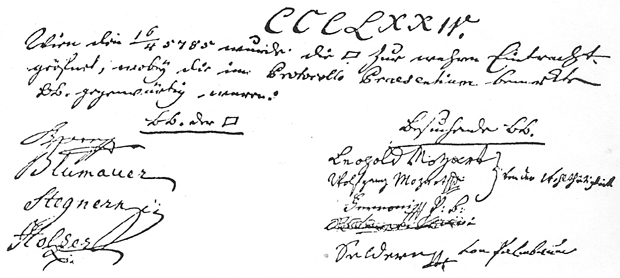 CCCLXXIV.
Wien den 16/4 5785 wurde die □ zur wahren Eintracht
geöfnet, wobey die im Protocollo Praesentium bemerkte
Bb. gegenwärtig waren:
Bb. der □
Besuchende Bb.
Blumauer
Stegnern
Holzer
Leopold Mozart
Wolfgang Mozart
von der Wohlthätigkeit
Seldern von